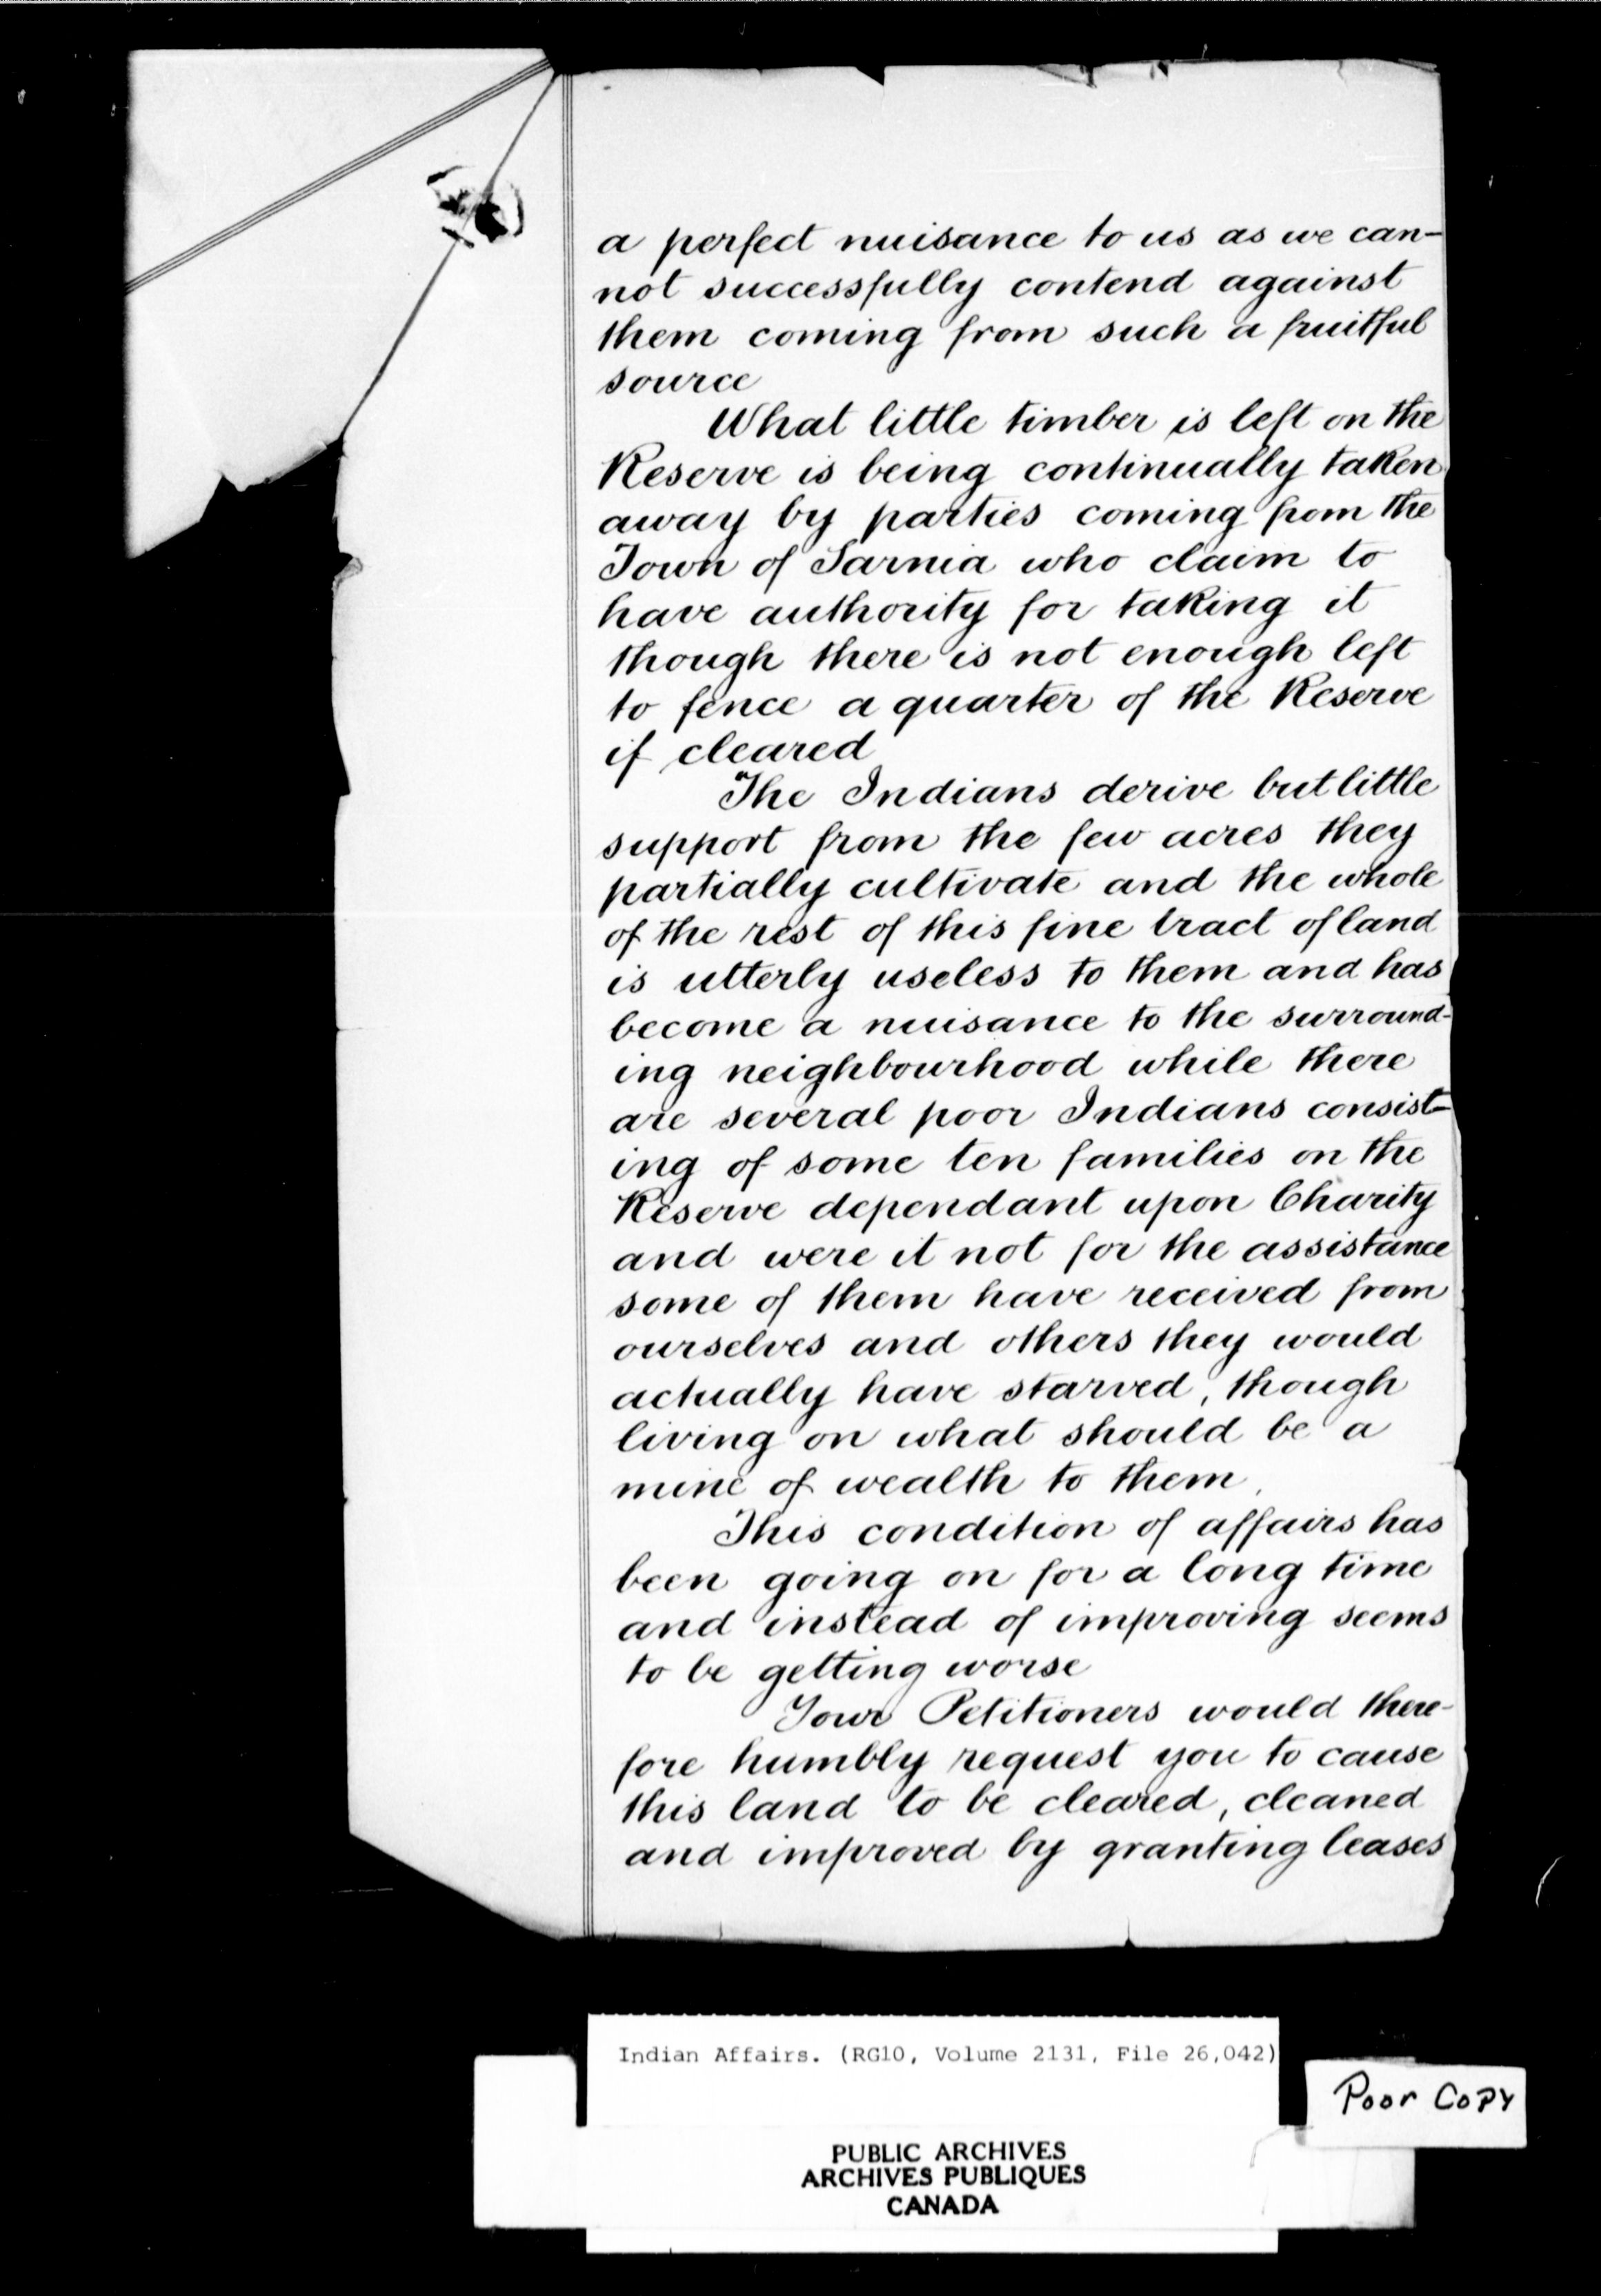 a perfect nuisance to us as we can-
not successfully contend against
them coming from such a fruitful
source
What little timber is left on the
Reserve is being continually taken
away by parties coming from the
Town of Sarnia who claim to
have authority for taking it
though there is not enough left
to fence a quarter of the Reserve
if cleared
The Indians derive but little
support from the few acres they
partially cultivate and the whole
of the rest of this fine tract of land
is utterly useless to them and has
become a nuisance to the surround-
ing neighbourhood while there
are several poor Indians consist-
ing of some ten families on the
Reserve dependant upon Charity
and were it not for the assistance
some of them have received from
ourselves and others they would
actually have starved, though
living on what should be a
mine of wealth to them.
This condition of affairs has
been going on for a long time
and instead of improving seems
to be getting worse
Your Petitioners would there-
fore humbly request you to cause
this land to be cleared, cleaned
and improved by granting leases
Indian Affairs. (RG10, Volume 2131, File 26,042)
Poor Copy
PUBLIC ARCHIVES
ARCHIVES PUBLIQUES
CANADA